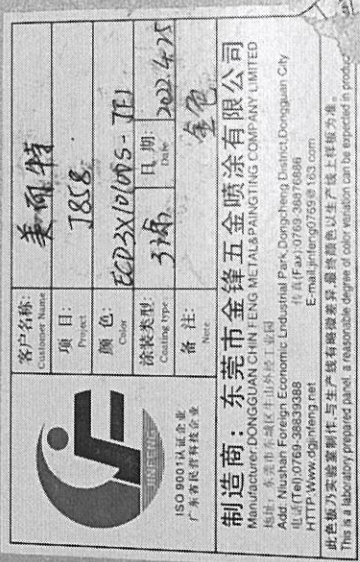 JINFENG
ISO 9001认证企业
广东省民营科技企业
客户名称:
Customer Name
美丽特
项 目:
Project
J858
颜 色:
Color
涂装类型:
Coating type
日 期:
Date
2022.4.25
备 注:
Note
金色
制造商：东莞市金锋五金喷涂有限公司
Manufacturer DONGGUAN CHIN FENG METAL&PAINGTING COMPANY LIMITED
地址：东莞市东城区牛山外经工业园
Add: Niushan Foreign Economic Lndustrial Park,Dongcheng District,Dongguan City
电话(Tel):0769-38839388 传真(Fax):0769-38876886
HTTP:Www.dgjinfeng.net E-mail:jinfeng0759@163.com
此色板乃实验室制作,与生产线有略微差异.最终颜色以生产线上样板为准。
This is a laboratory prepared panel, a reasonable degree of color veriation can be expected in product